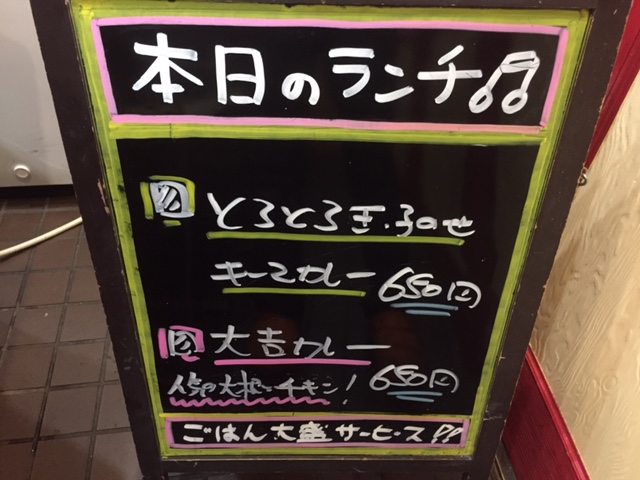 本日のランチ♫
とろとろ玉子のせ
キーマカレー 650円
大吉カレー
チキン! 650円
ごはん大盛サービス!!